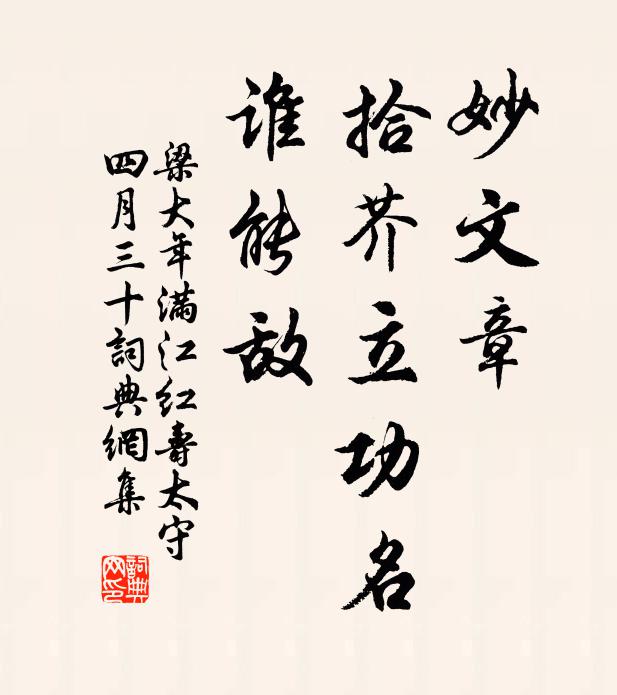 妙文章
拾芥立功名
谁能敌
梁大年满江红寿太守
四月三十詞典網集
詞典
网印